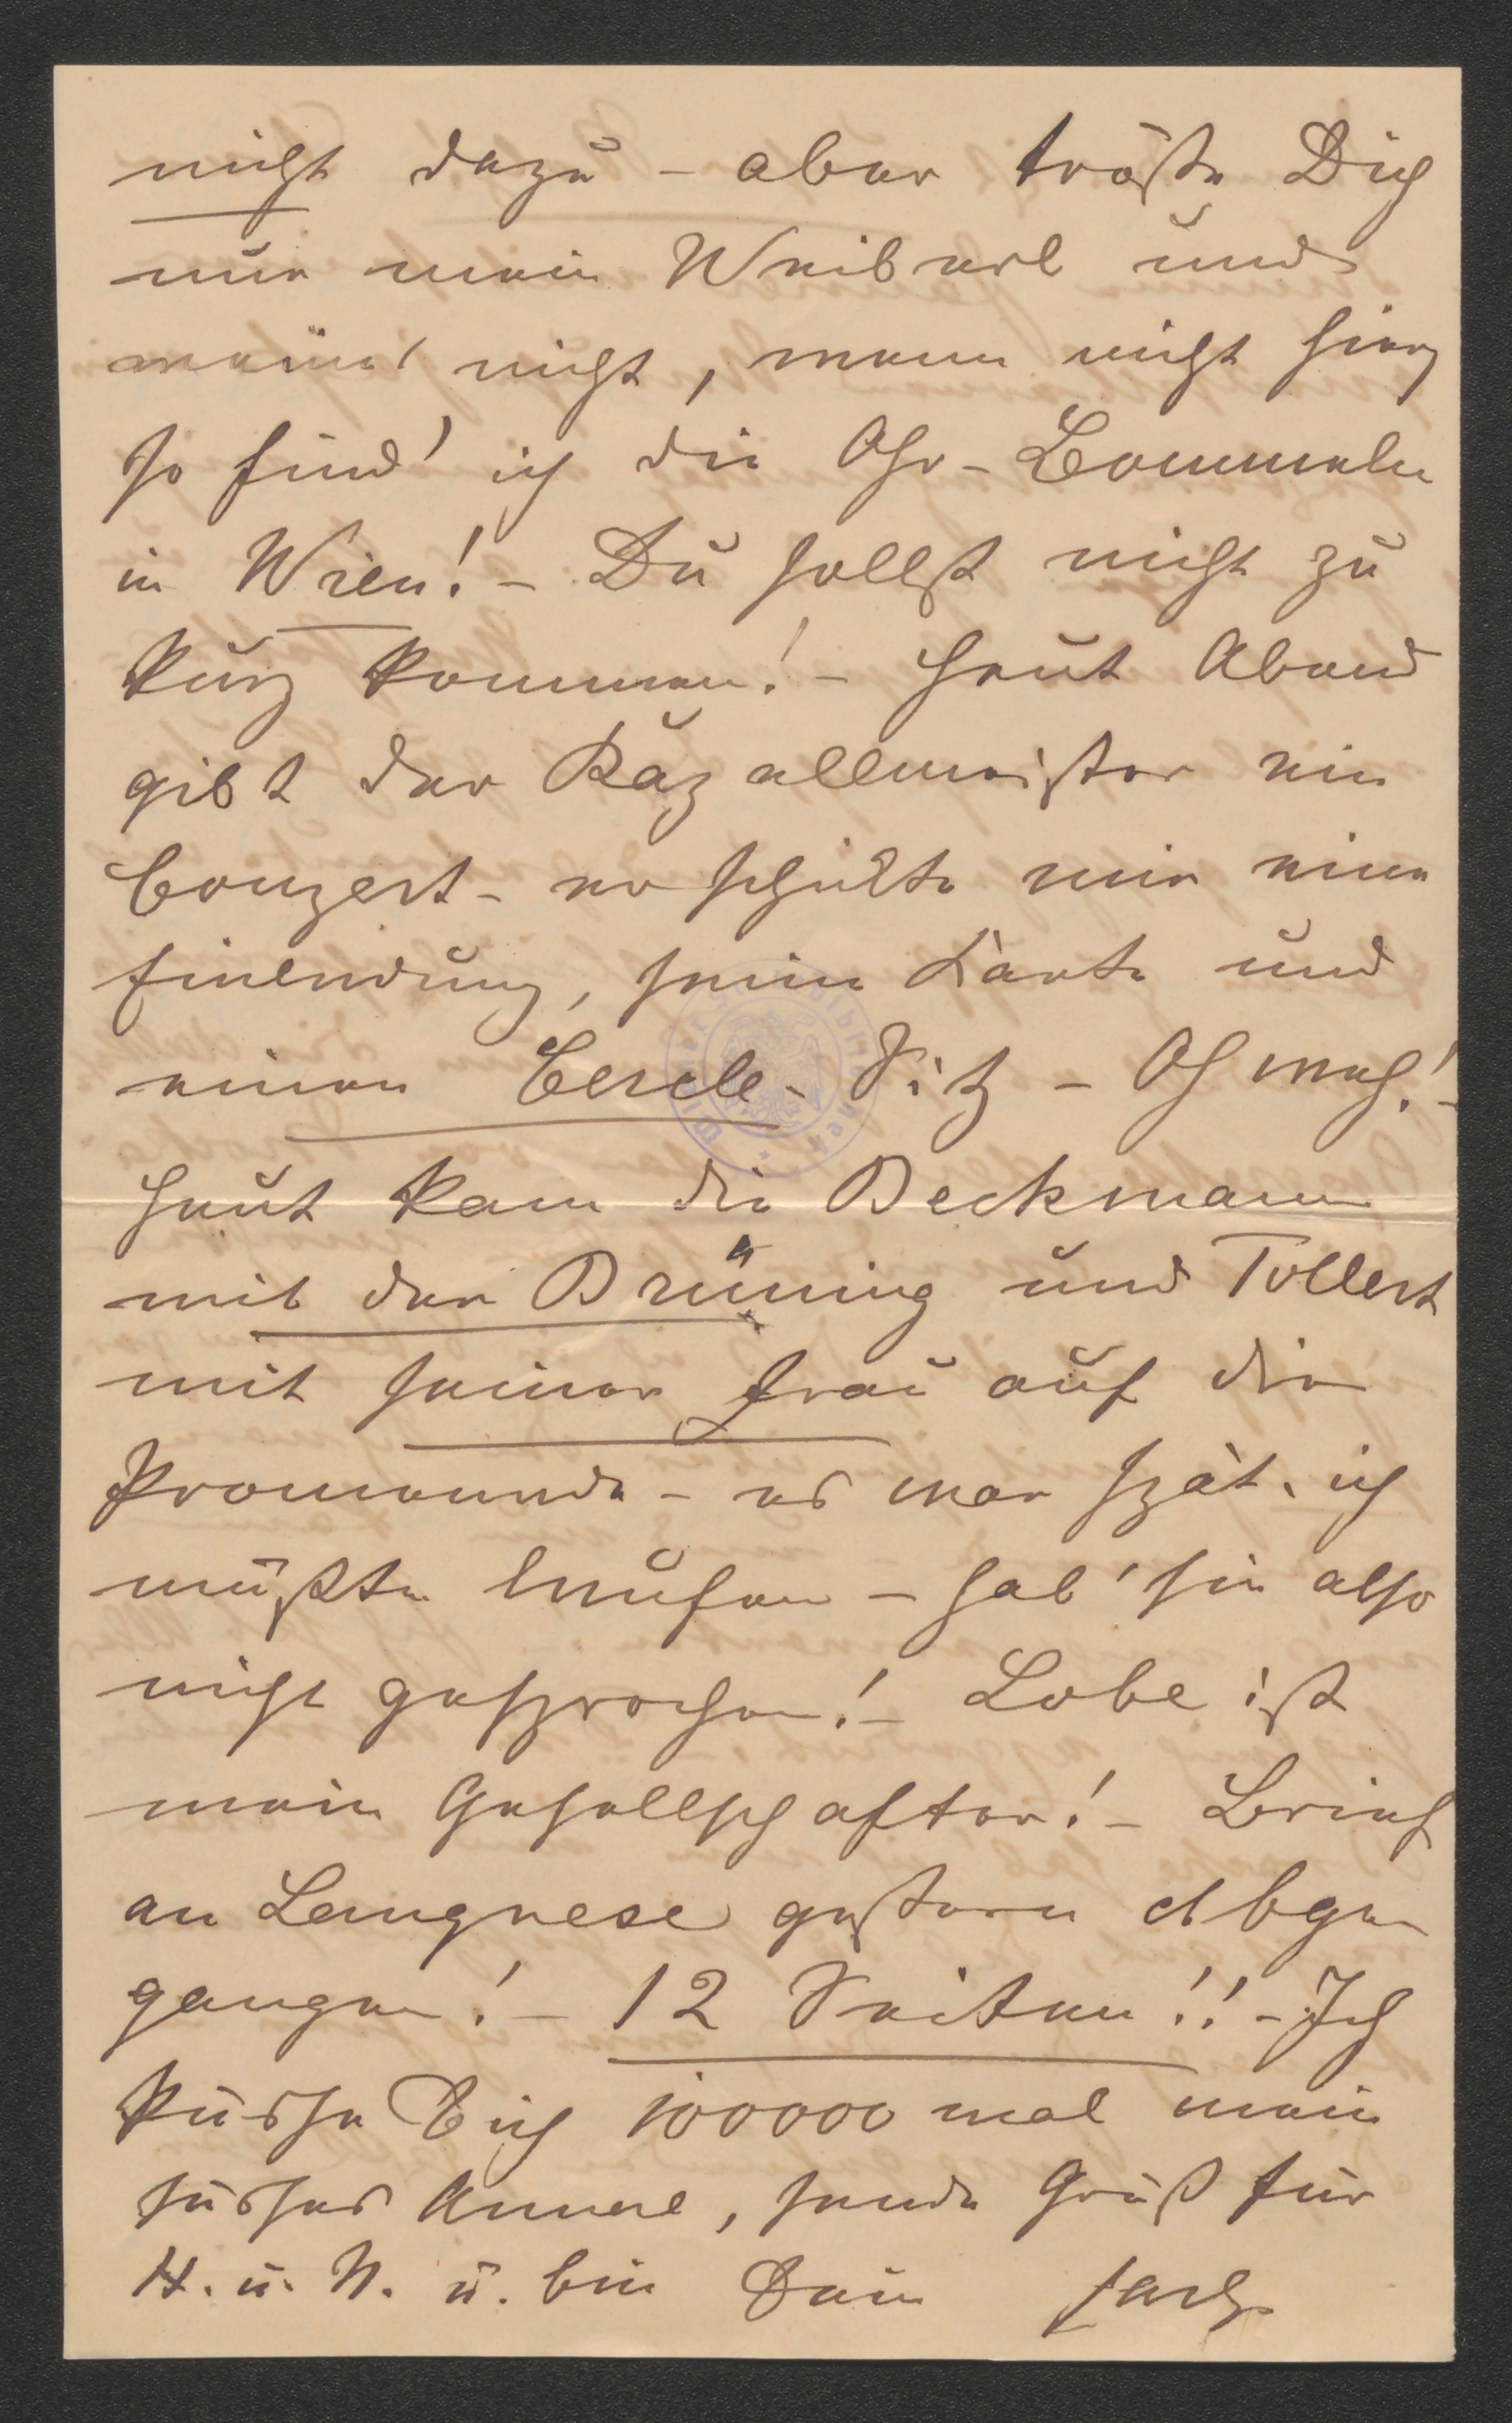 nicht dazu - aber tröste Dich
nur mein Weiberl und
weine nicht, wenn nicht hier
so find' ich die Ohr-Bommeln
in Wien! - Du sollst nicht zu
kurz kommen! - Heut Abend
gibt der Kapellmeister ein
Conzert - er schickte mir eine
Einladung, seine Karte und
einen Cercle-Sitz - Oh weh! -
Heut kam die Beckmann
mit der Brüning und Tollert
mit seiner Frau auf die
Promenende - es war spät, ich
mußte laufen - hab' sie also
nicht gesprochen! - Lobe ist
mein Gesellschafter! - Brief
an Langnese gestern abge
gangen! - 12 Seiten!! - Ich
küsse Dich 100000 mal mein
süsses Annerl, sende Gruß für
H. u. N. u. bin Dein